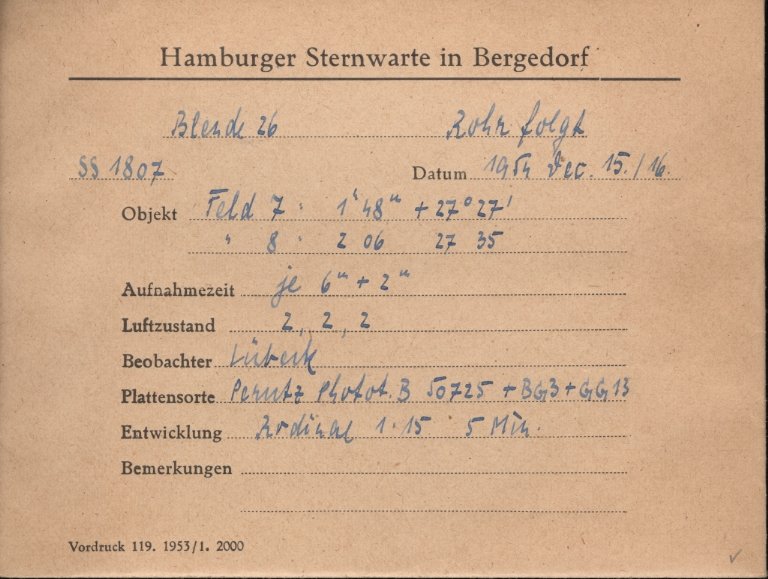 Hamburger Sternwarte in Bergedorf
Blende 26 Rohr folgt
SS 1807 Datum 1954 Dec. 15./16.
Objekt Feld 7: 1ʰ48ᵐ +27°27'
" 8: 2 06 27 35
Aufnahmezeit je 6ᵐ + 2ᵐ
Luftzustand 2, 2, 2
Beobachter Lübeck
Plattensorte Perutz Photot. B 50725 + BG3 + GG13
Entwicklung Rodinal 1:15 5 Min.
Bemerkungen
Vordruck 119. 1953/1. 2000